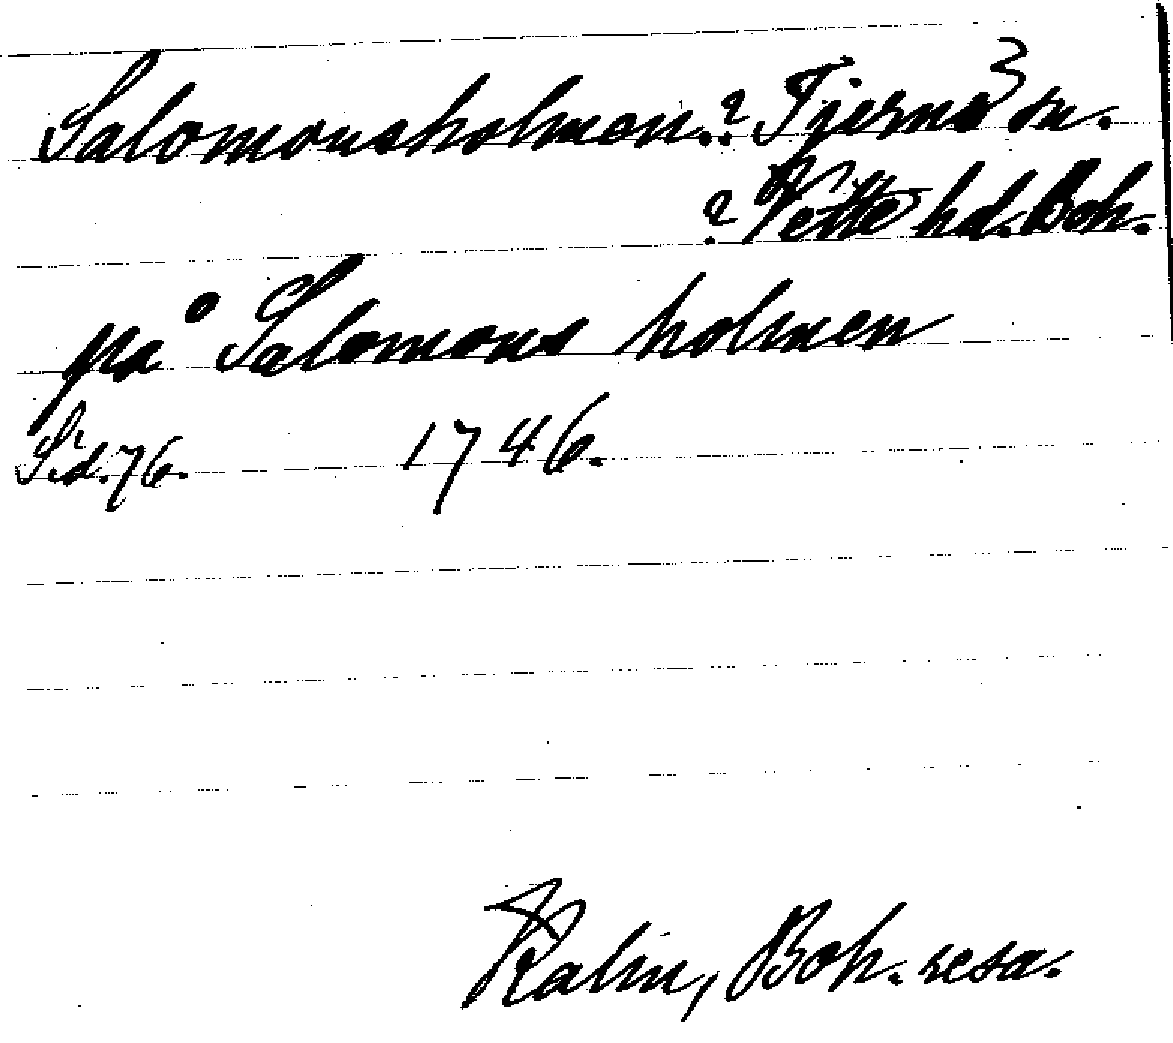 Salomonsholmen. ? Tjernö sn.
? Vette hd. Boh.
på Salomons holmen
Sid. 76. 1746.
Kalm, Boh. resa.